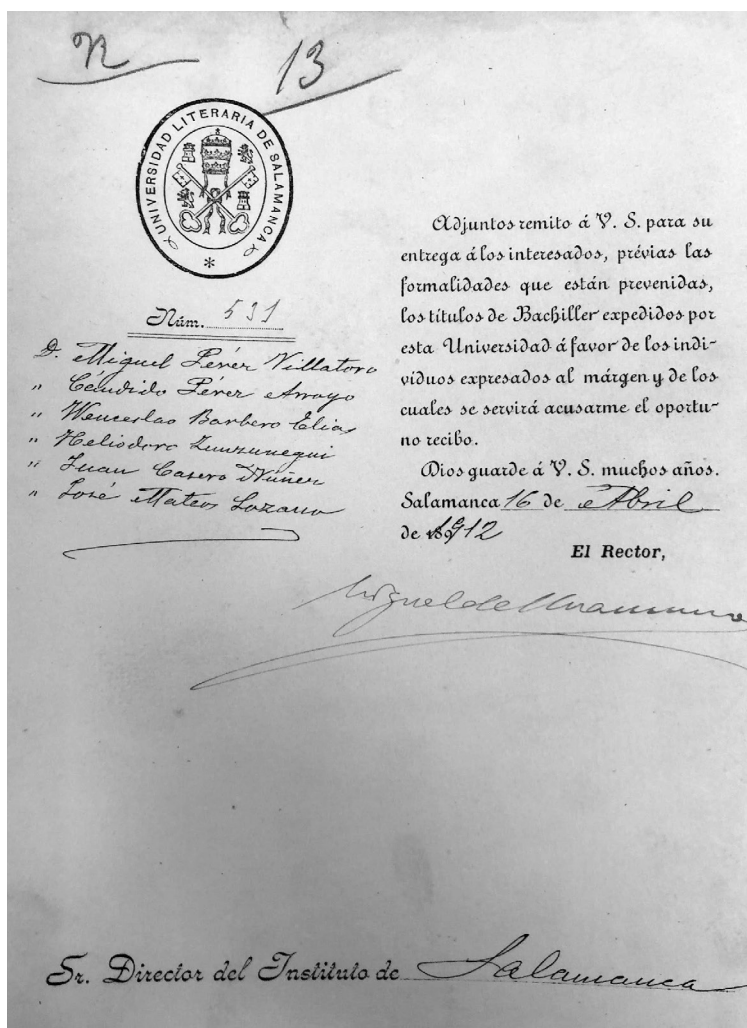 n 13
UNIVERSIDAD LITERARIA DE SALAMANCA
*
Núm. 531
D. Miguel Pérez Villatoro
" Cándido Pérez Arroyo
" Wenceslao Barbero Elias
" Heliodoro Zunzunegui
" Juan Casero Núñez
" José Mateos Lozano
Adjuntos remito á V. S. para su
entrega á los interesados, prévias las
formalidades que están prevenidas,
los títulos de Bachiller expedidos por
esta Universidad á favor de los indi-
víduos expresados al márgen y de los
cuales se servirá acusarme el oportu-
no recibo.
Dios guarde á V. S. muchos años.
Salamanca 16 de Abril
de 1912
El Rector,
Miguel de Unamuno
Sr. Director del Instituto de Salamanca